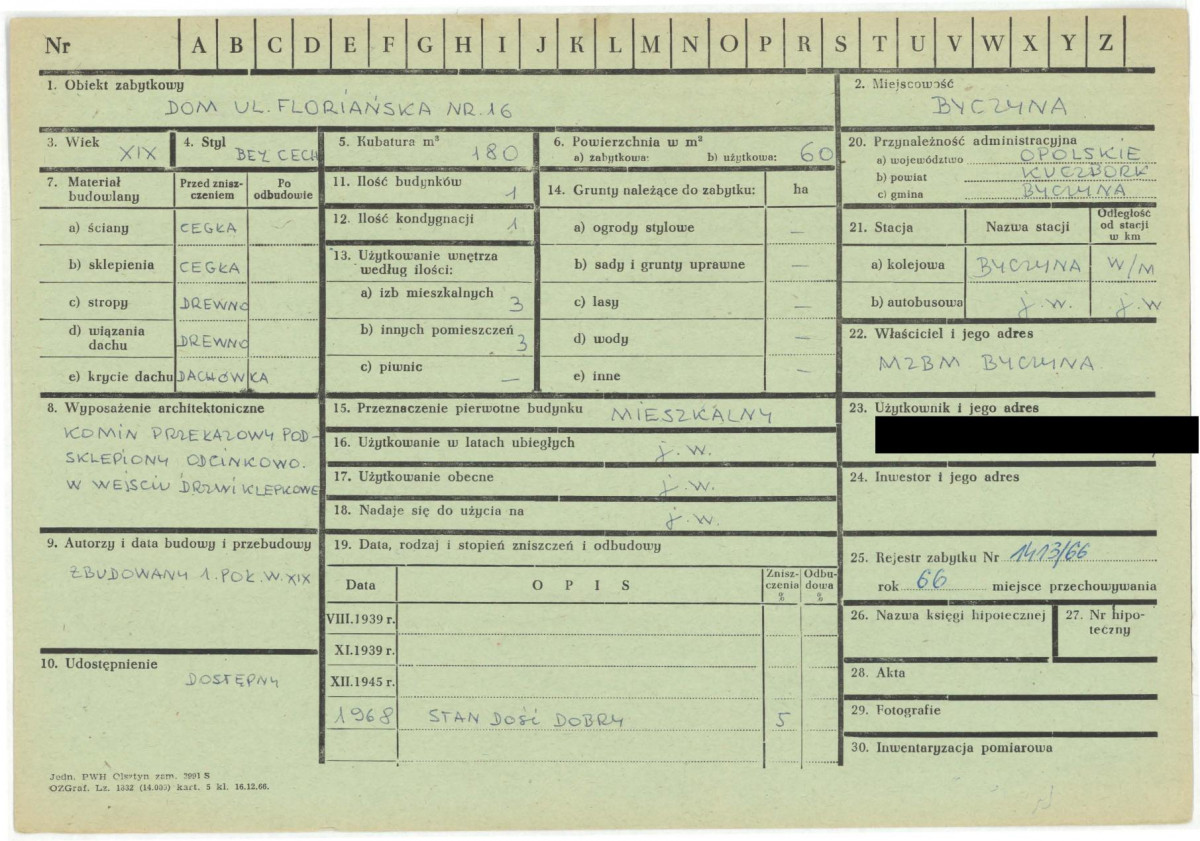 Nr A B C D E F G H I J K L M N O P R S T U V W X Y Z
1. Obiekt zabytkowy
DOM UL. FLORIAŃSKA NR. 16
2. Miejscowość
BYCZYNA
3. Wiek XIX
4. Styl BEZ CECH
5. Kubatura m³ 180
6. Powierzchnia w m²
a) zabytkowa: b) użytkowa: 60
20. Przynależność administracyjna
a) województwo OPOLSKIE
b) powiat KUCZBORK
c) gmina BYCZYNA
7. Materiał budowlany
Przed zniszczeniem
Po odbudowie
a) ściany CEGŁA
b) sklepienia CEGŁA
c) stropy DREWNO
d) wiązania dachu DREWNO
e) krycie dachu DACHÓWKA
11. Ilość budynków 1
12. Ilość kondygnacji 1
13. Użytkowanie wnętrza
według ilości:
a) izb mieszkalnych 3
b) innych pomieszczeń 3
c) piwnic —
14. Grunty należące do zabytku: ha
a) ogrody stylowe —
b) sady i grunty uprawne —
c) lasy —
d) wody —
e) inne —
21. Stacja Nazwa stacji Odległość od stacji w km
a) kolejowa BYCZYNA W/M
b) autobusowa j.w. j.w
22. Właściciel i jego adres
MZBM BYCZYNA
8. Wyposażenie architektoniczne
KOMIN PRZEKAZOWY POD-
SKLEPIONY ODCINKOWO.
W WEJSCIU DRZWI KLEPKOWE
15. Przeznaczenie pierwotne budynku MIESZKALNY
16. Użytkowanie w latach ubiegłych j.w.
17. Użytkowanie obecne j.w.
18. Nadaje się do użycia na j.w.
23. Użytkownik i jego adres
24. Inwestor i jego adres
9. Autorzy i data budowy i przebudowy
ZBUDOWANY 1. POŁ. W. XIX
19. Data, rodzaj i stopień zniszczeń i odbudowy
Data OPIS Zniszczenia % Odbudowa %
VIII.1939 r.
XI.1939 r.
XII.1945 r.
1968 STAN DOŚĆ DOBRY 5
25. Rejestr zabytku Nr 1413/66
rok 66 miejsce przechowywania
26. Nazwa księgi hipotecznej
27. Nr hipoteczny
10. Udostępnienie
DOSTĘPNY
28. Akta
29. Fotografie
30. Inwentaryzacja pomiarowa
Jedn. PWH Olsztyn zam. 2991 S
OZGraf. Lz. 1832 (14.000) kart. 5 kl. 16.12.66.